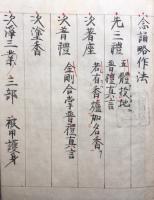 念誦略作法
先三禮
五體投地
普禮真言
次著座
若有香爐如名香
次普禮
金剛合掌普禮真言
次塗香
次淨三業 三部 被甲護身